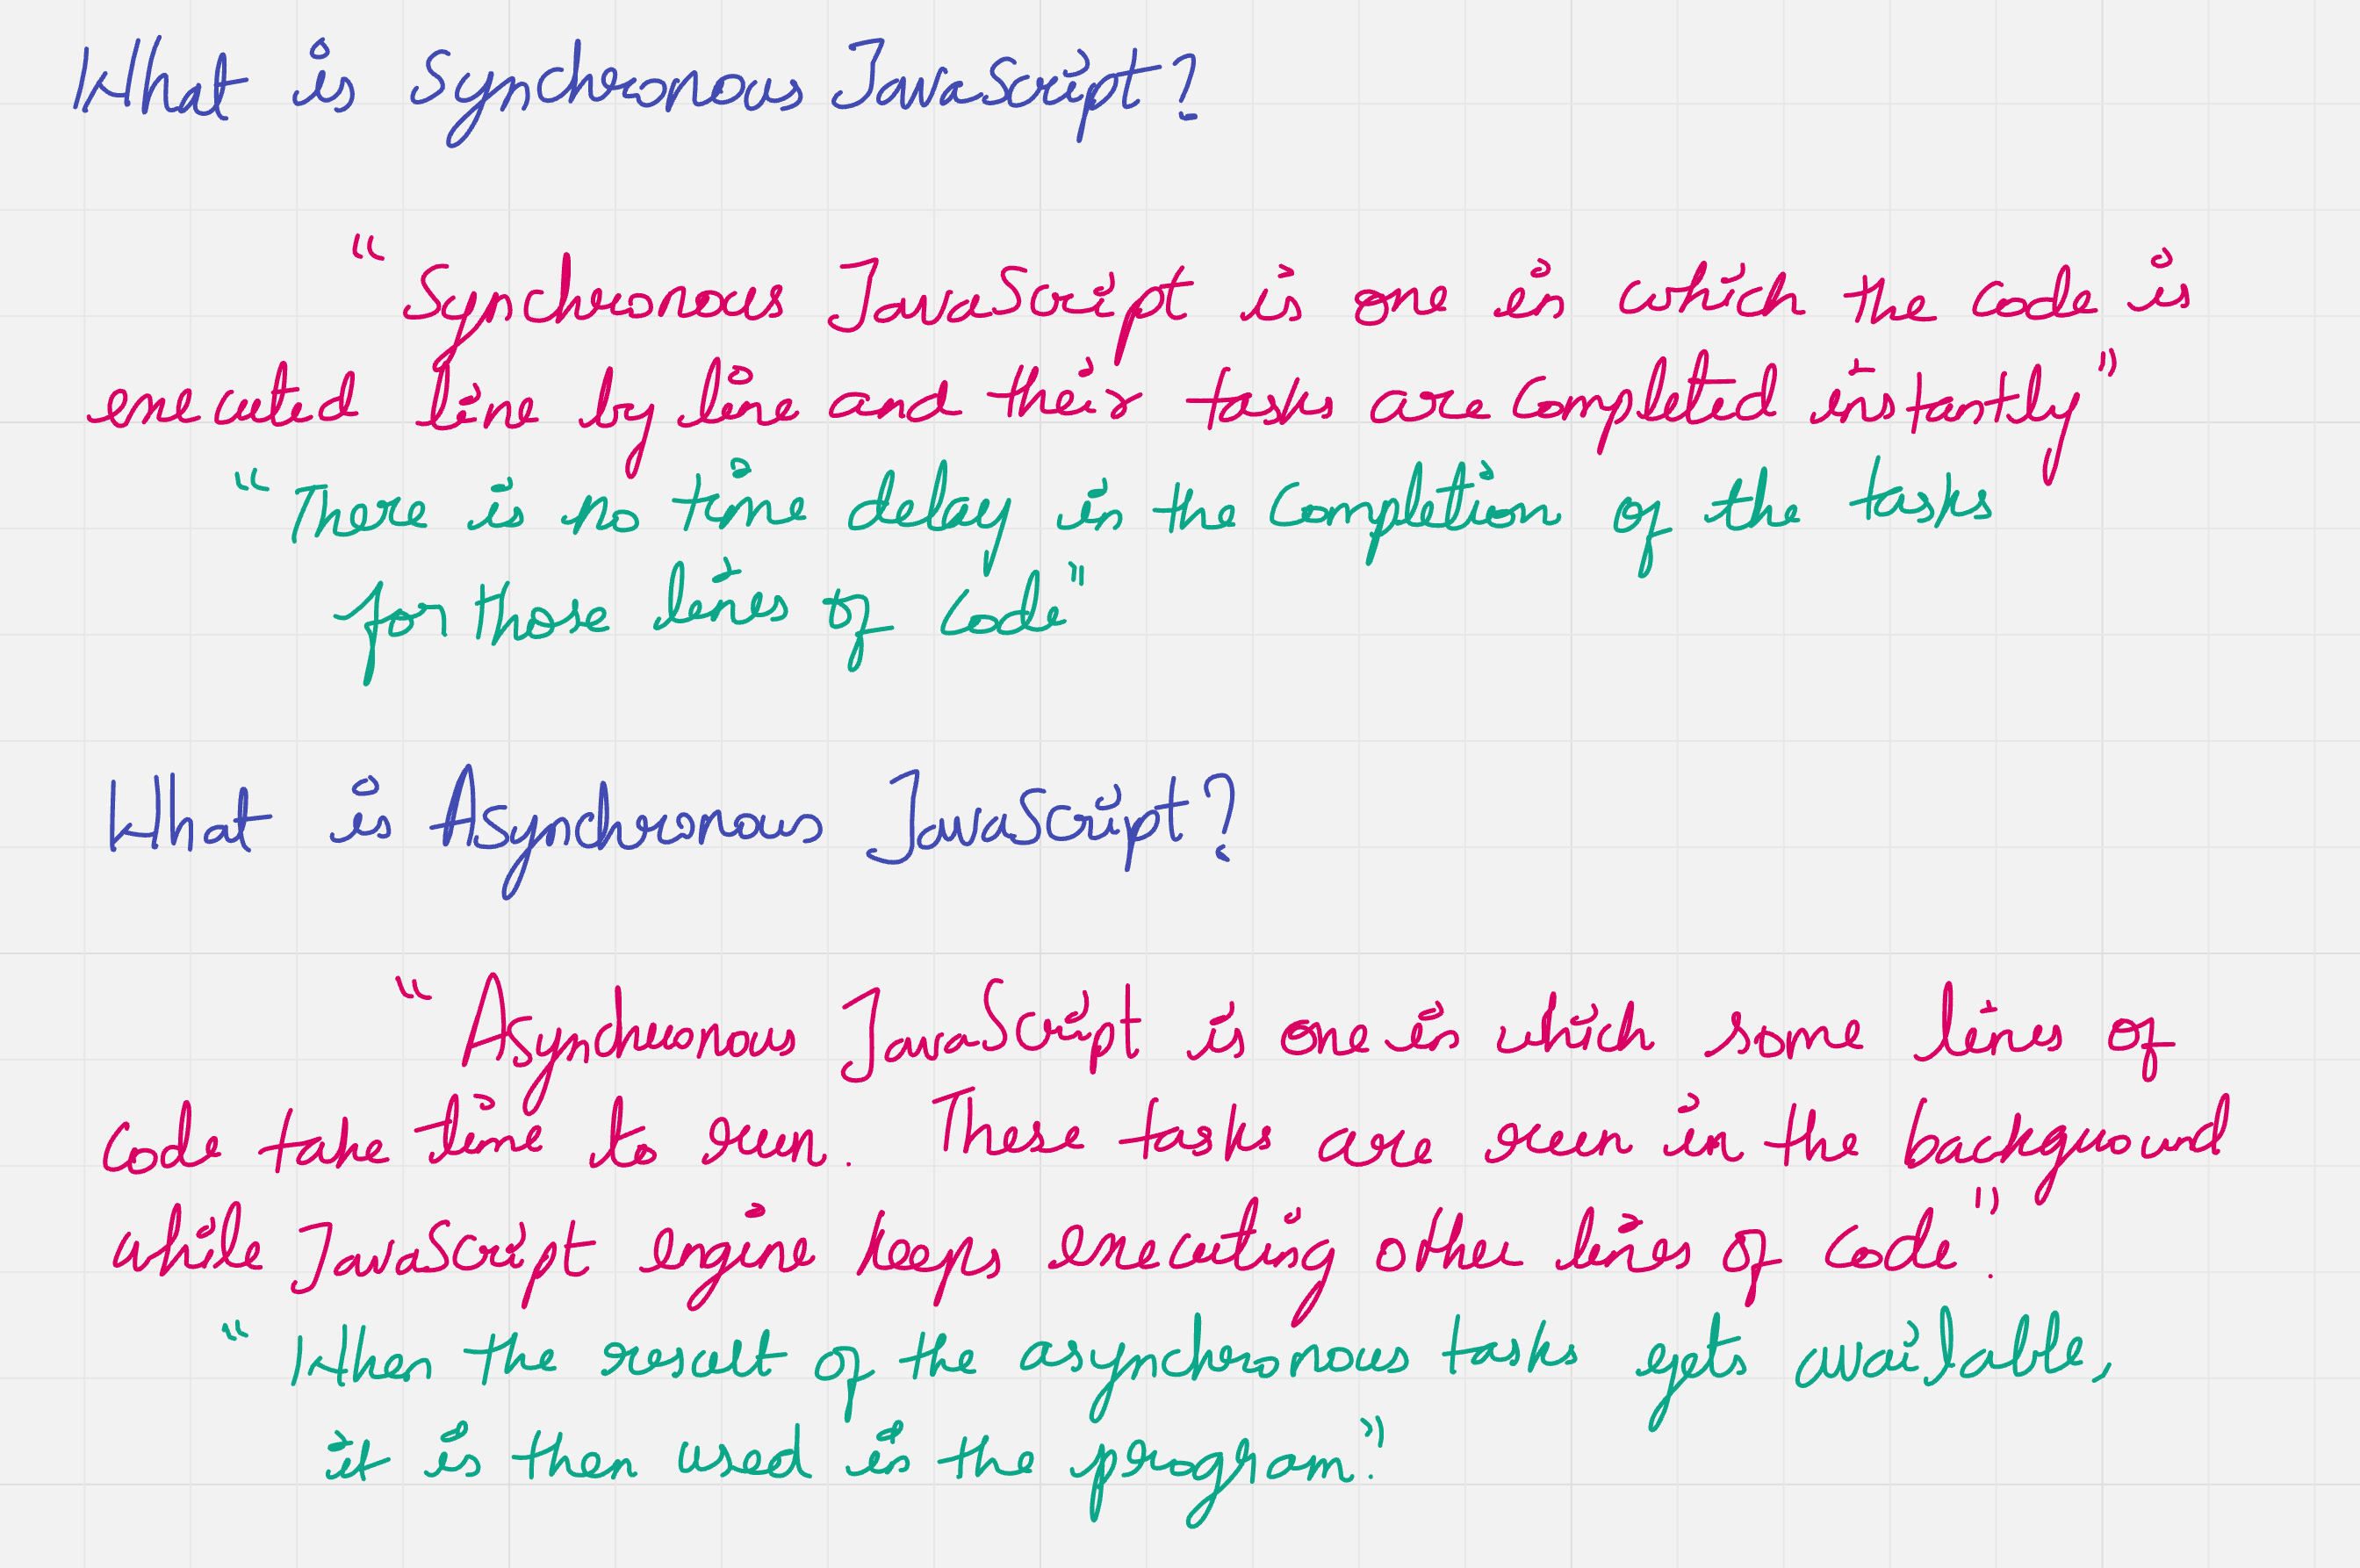 What is Synchronous JavaScript?
“Synchronous JavaScript is one in which the code is
executed line by line and their tasks are completed instantly”
“There is no time delay in the completion of the tasks
for those lines of code”
What is Asynchronous JavaScript?
“Asynchronous JavaScript is one in which some lines of
code take time to run. These tasks are run in the background
while JavaScript engine keeps executing other lines of code”.
“When the result of the asynchronous tasks gets available,
it is then used in the program”.